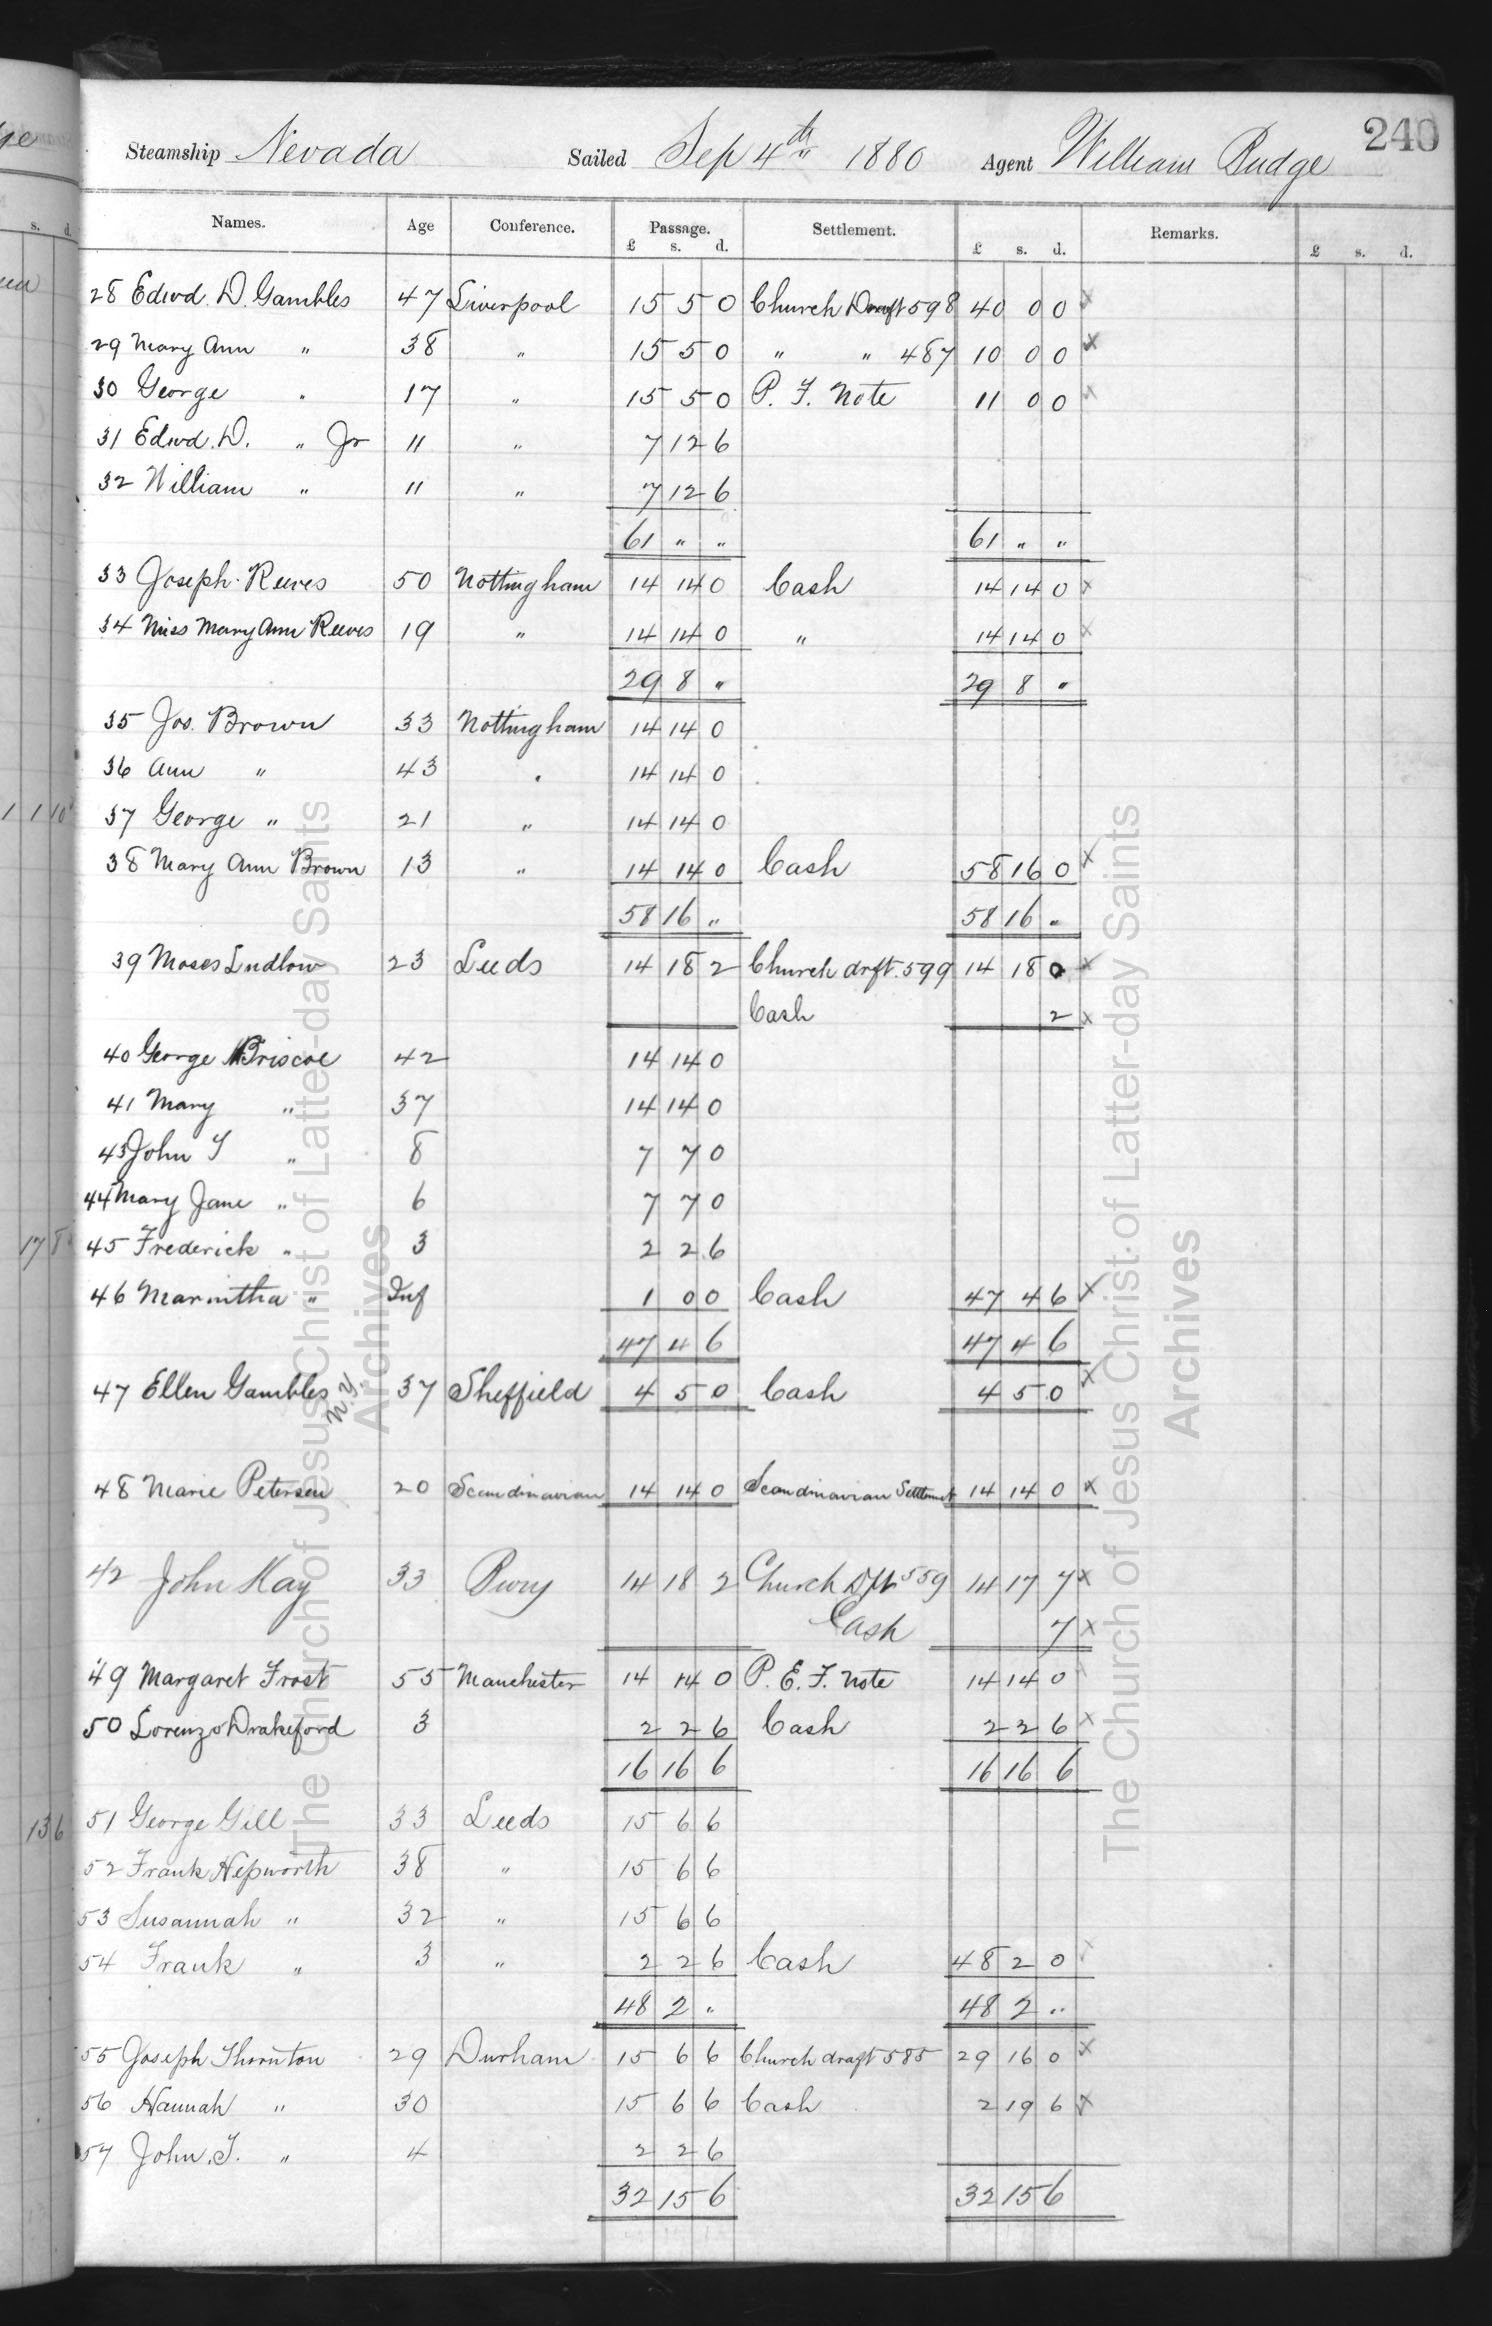 240
Steamship Nevada Sailed Sep 4th 1880 Agent William Budge
Names. Age Conference. Passage. Settlement. Remarks.
£ s. d. £ s. d. £ s. d.
28 Edwd. D. Gambles 47 Liverpool 15 5 0 Church Draft 598 40 0 0 x
29 Mary Ann " 38 " 15 5 0 " " 487 10 0 0 x
30 George " 17 " 15 5 0 P. F. Note 11 0 0 x
31 Edwd. D. " Jr 11 " 7 12 6
32 William " 11 " 7 12 6
61 " " 61 " "
33 Joseph Reeves 50 Nottingham 14 14 0 Cash 14 14 0 x
34 Miss Mary Ann Reeves 19 " 14 14 0 " 14 14 0 x
29 8 " 29 8 "
35 Jos. Brown 33 Nottingham 14 14 0
36 Ann " 43 " 14 14 0
37 George " 21 " 14 14 0
38 Mary Ann Brown 13 " 14 14 0 Cash 58 16 0 x
58 16 " 58 16 "
39 Moses Ludlow 23 Leeds 14 18 2 Church drft. 599 14 18 0 x
Cash 2 x
40 George Briscoe 42 14 14 0
41 Mary " 37 14 14 0
43 John T " 8 7 7 0
44 Mary Jane " 6 7 7 0
45 Frederick " 3 2 2 6
46 Marintha " Inf 1 0 0 Cash 47 4 6 x
47 4 6 47 4 6
47 Ellen Gambles N.Y. 37 Sheffield 4 5 0 Cash 4 5 0 x
48 Marie Petersen 20 Scandinavian 14 14 0 Scandinavian Settlemet 14 14 0 x
42 John Hay 33 14 18 2 Church Dft 559 14 17 7 x
Cash 7 x
49 Margaret Frost 55 Manchester 14 14 0 P. E. F. Note 14 14 0
50 Lorenzo Drakeford 3 2 2 6 Cash 2 2 6 x
16 16 6 16 16 6
51 George Gill 33 Leeds 15 6 6
52 Frank Hepworth 38 " 15 6 6
53 Susannah " 32 " 15 6 6
54 Frank " 3 " 2 2 6 Cash 48 2 0 x
48 2 " 48 2 "
55 Joseph Thornton 29 Durham 15 6 6 Church draft 585 29 16 0 x
56 Hannah " 30 15 6 6 Cash 2 19 6 x
57 John. T. " 4 2 2 6
32 15 6 32 15 6
The Church of Jesus Christ of Latter-day Saints
Archives
The Church of Jesus Christ of Latter-day Saints
Archives